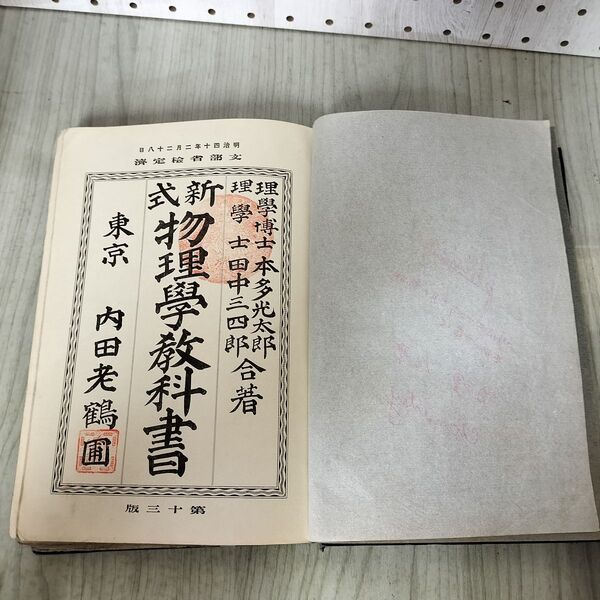 明治四十年二月二十八日
文部省檢定濟
理學博士 本多光太郎
理學士 田中三四郎 合著
新式 物理學教科書
東京 內田老鶴圃
第十三版